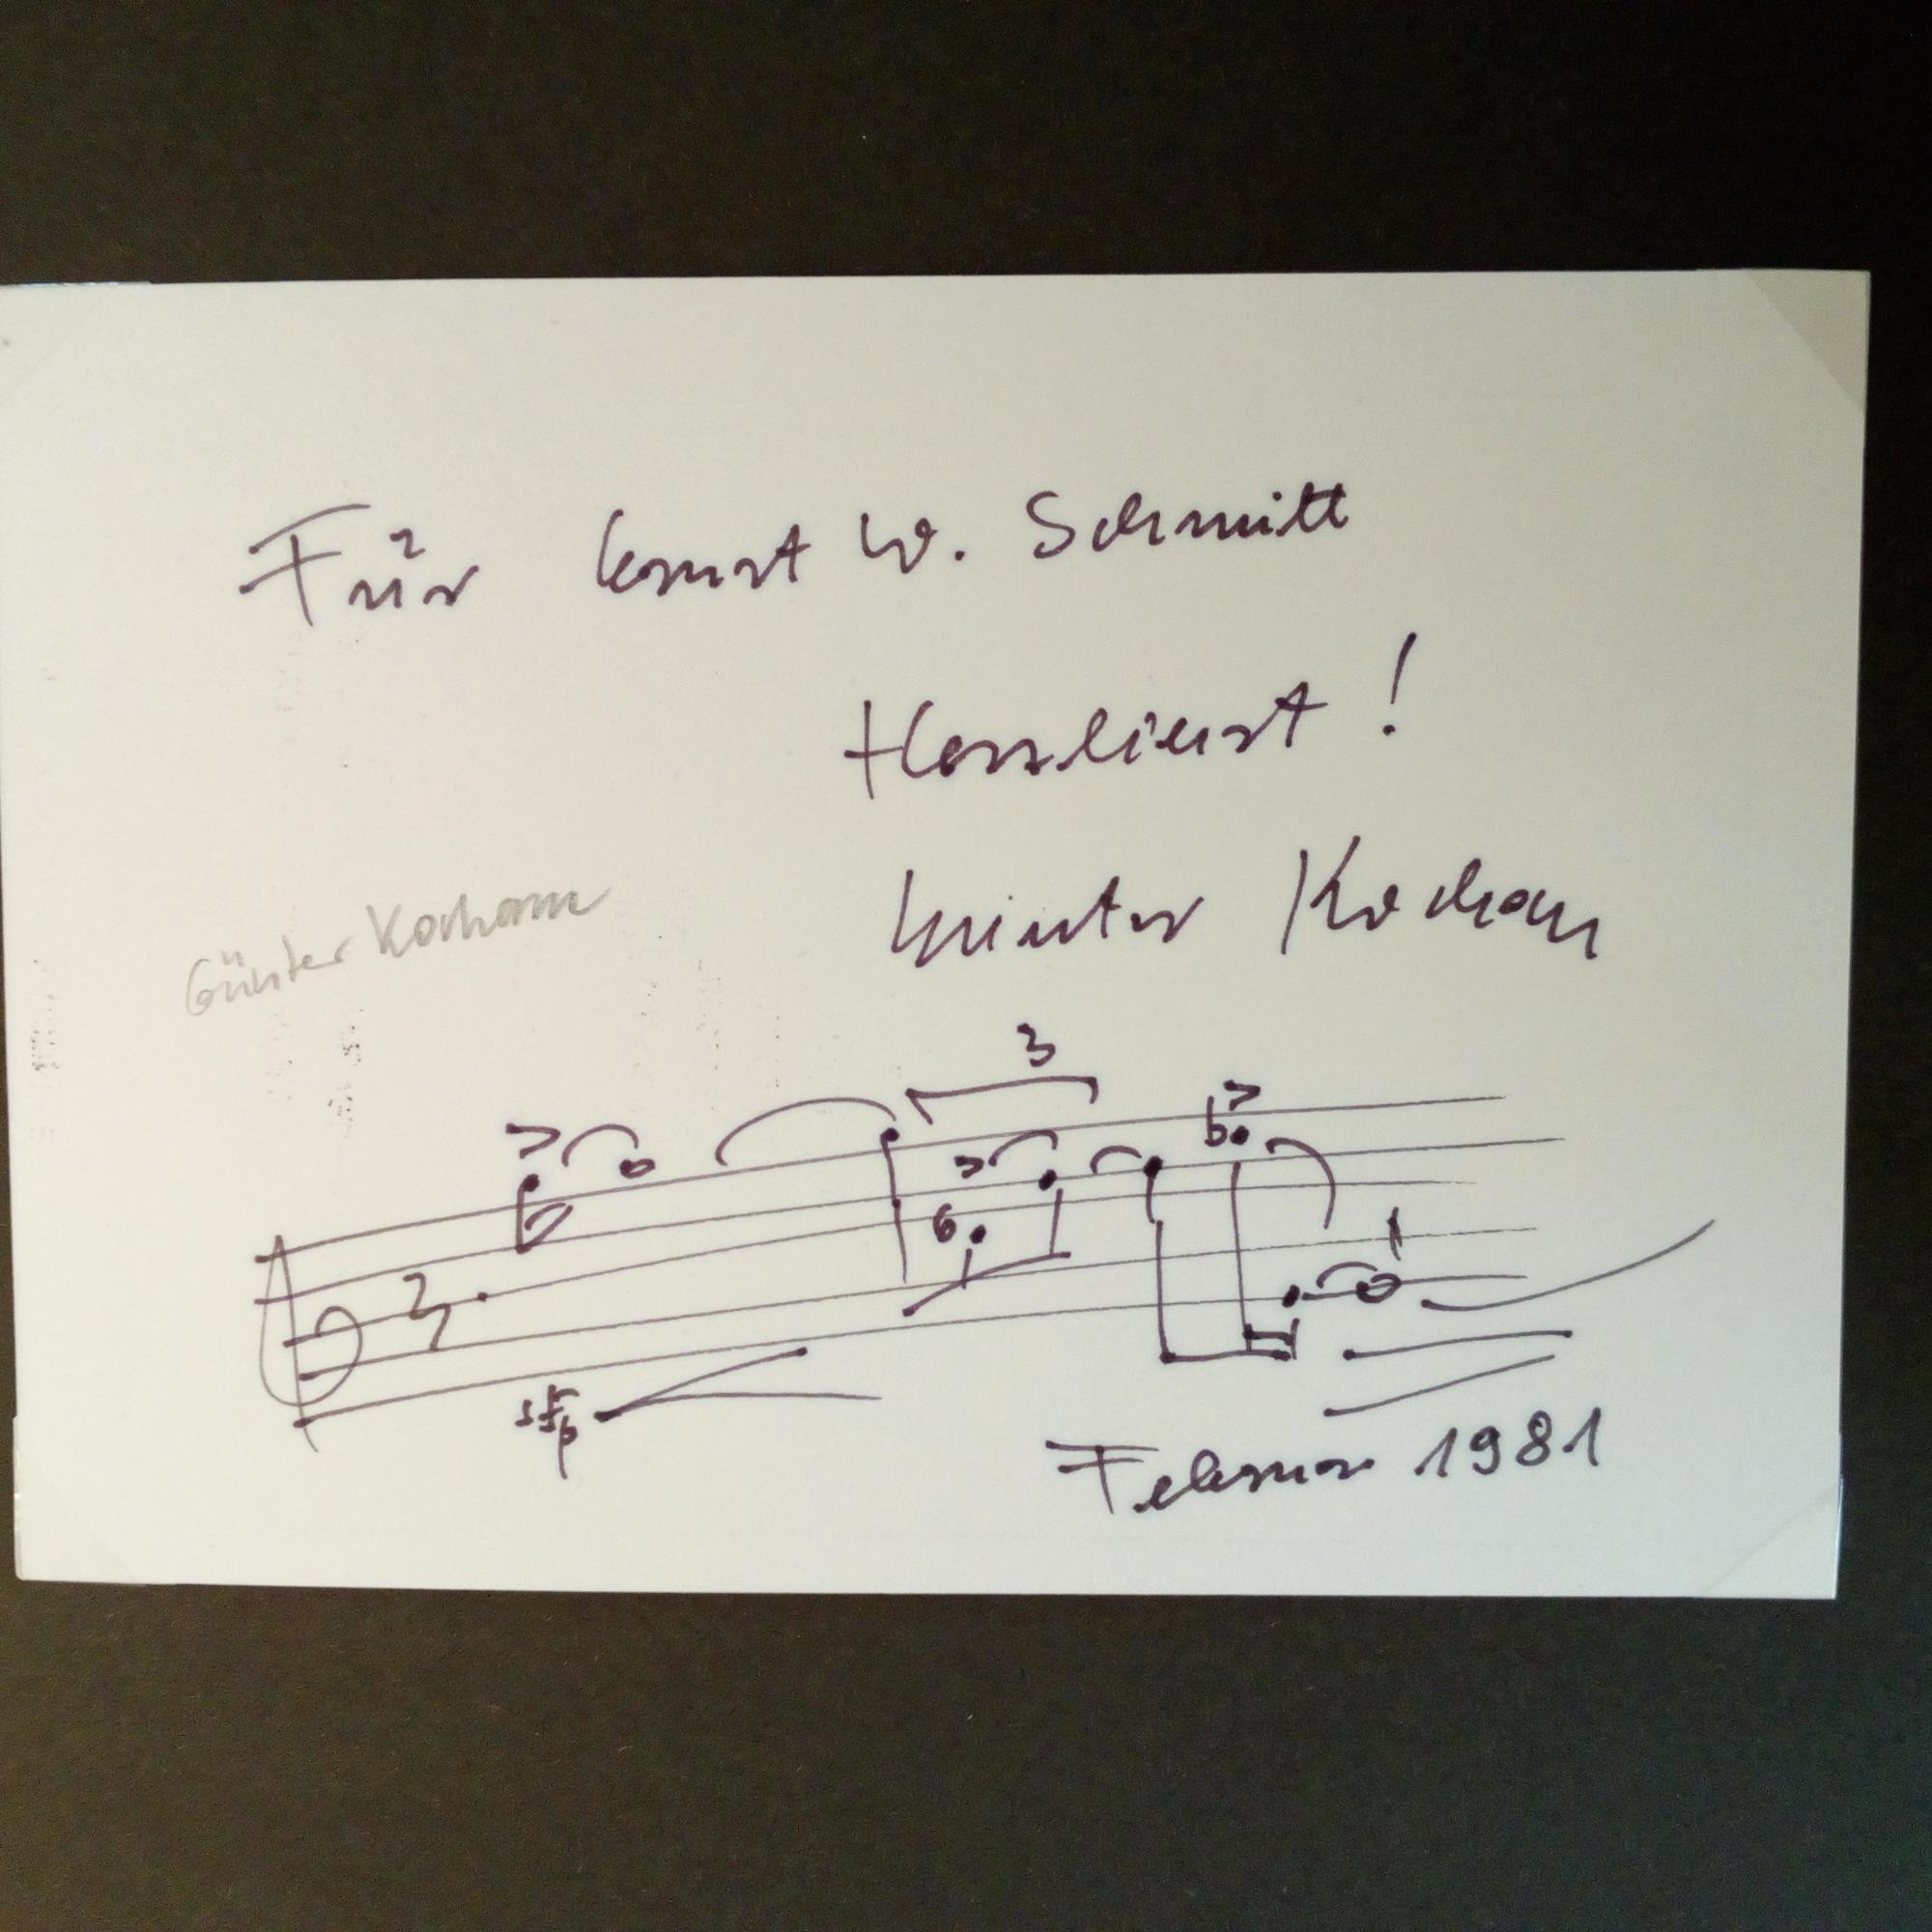 Für Ernst W. Schmitt
Herzlichst!
Günter Kochan
Günter Kochann
3
sfp
Februar 1981